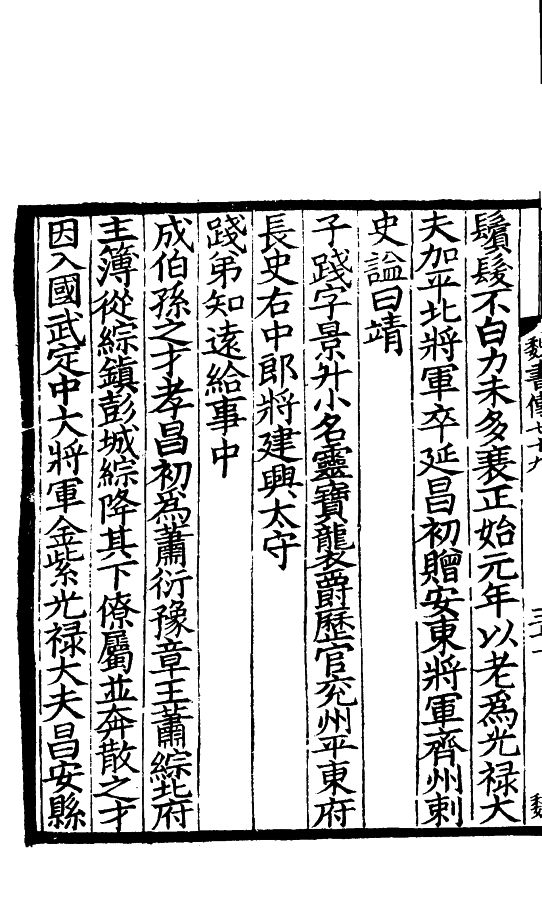 魏書傳七十九
鬚髮不白力未多衰正始元年以老爲光禄大
夫加平北將軍卒延昌初贈安東將軍齊州刺
史謚曰靖
子踐字景升小名靈寶襲爵歷官兖州平東府
長史右中郎將建興太守
踐弟知遠給事中
成伯孫之才孝昌初爲蕭衍豫章王蕭綜北府
主簿從綜鎮彭城綜降其下僚屬並奔散之才
因入國武定中大將軍金紫光禄大夫昌安縣